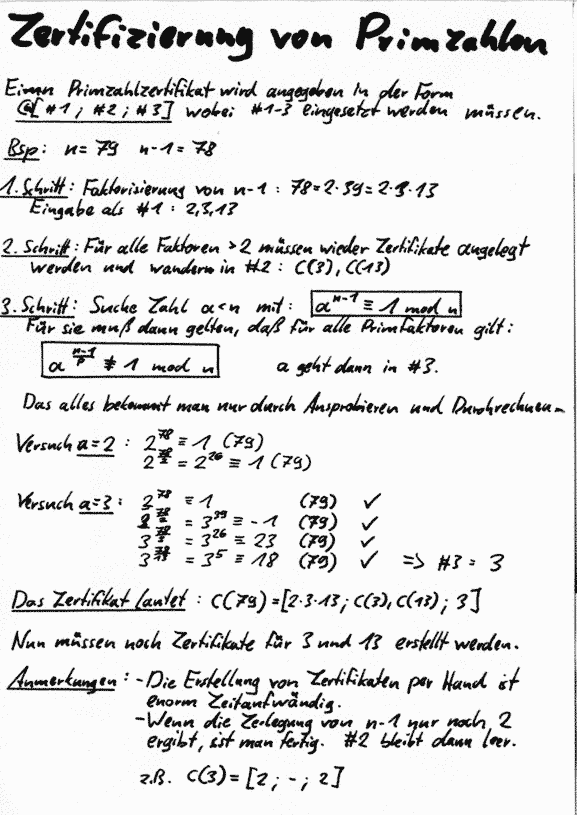 Zertifizierung von Primzahlen
Einen Primzahlzertifikat wird angegeben in der Form
@[ #1 ; #2 ; #3 ] wobei #1-3 eingesetzt werden müssen.
Bsp: n = 79 n-1 = 78
1. Schritt: Faktorisierung von n-1 : 78 = 2·39 = 2·3·13
Eingabe als #1 : 2,3,13
2. Schritt: Für alle Faktoren >2 müssen wieder Zertifikate angelegt
werden und wandern in #2 : C(3), C(13)
3. Schritt: Suche Zahl a<n mit: a^(n-1) ≡ 1 mod n
Für sie muß dann gelten, daß für alle Primfaktoren gilt:
a^((n-1)/p) ≢ 1 mod n a geht dann in #3.
Das alles bekommt man nur durch Ansprobieren und Durchrechnen.
Versuch a=2 : 2^78 ≡ 1 (79)
2^(78/3) = 2^26 ≡ 1 (79)
Versuch a=3 : 2^78 ≡ 1 (79) ✓
2^(78/2) = 3^39 ≡ -1 (79) ✓
3^(78/3) = 3^26 ≡ 23 (79) ✓
3^(78/13) = 3^5 ≡ 18 (79) ✓ => #3 = 3
Das Zertifikat lautet : C(79) = [2·3·13 ; C(3), C(13) ; 3]
Nun müssen noch Zertifikate für 3 und 13 erstellt werden.
Anmerkungen : - Die Erstellung von Zertifikaten per Hand ist
enorm Zeitaufwändig.
- Wenn die Zerlegung von n-1 nur noch 2
ergibt, ist man fertig. #2 bleibt dann leer.
z.B. C(3) = [2 ; - ; 2]